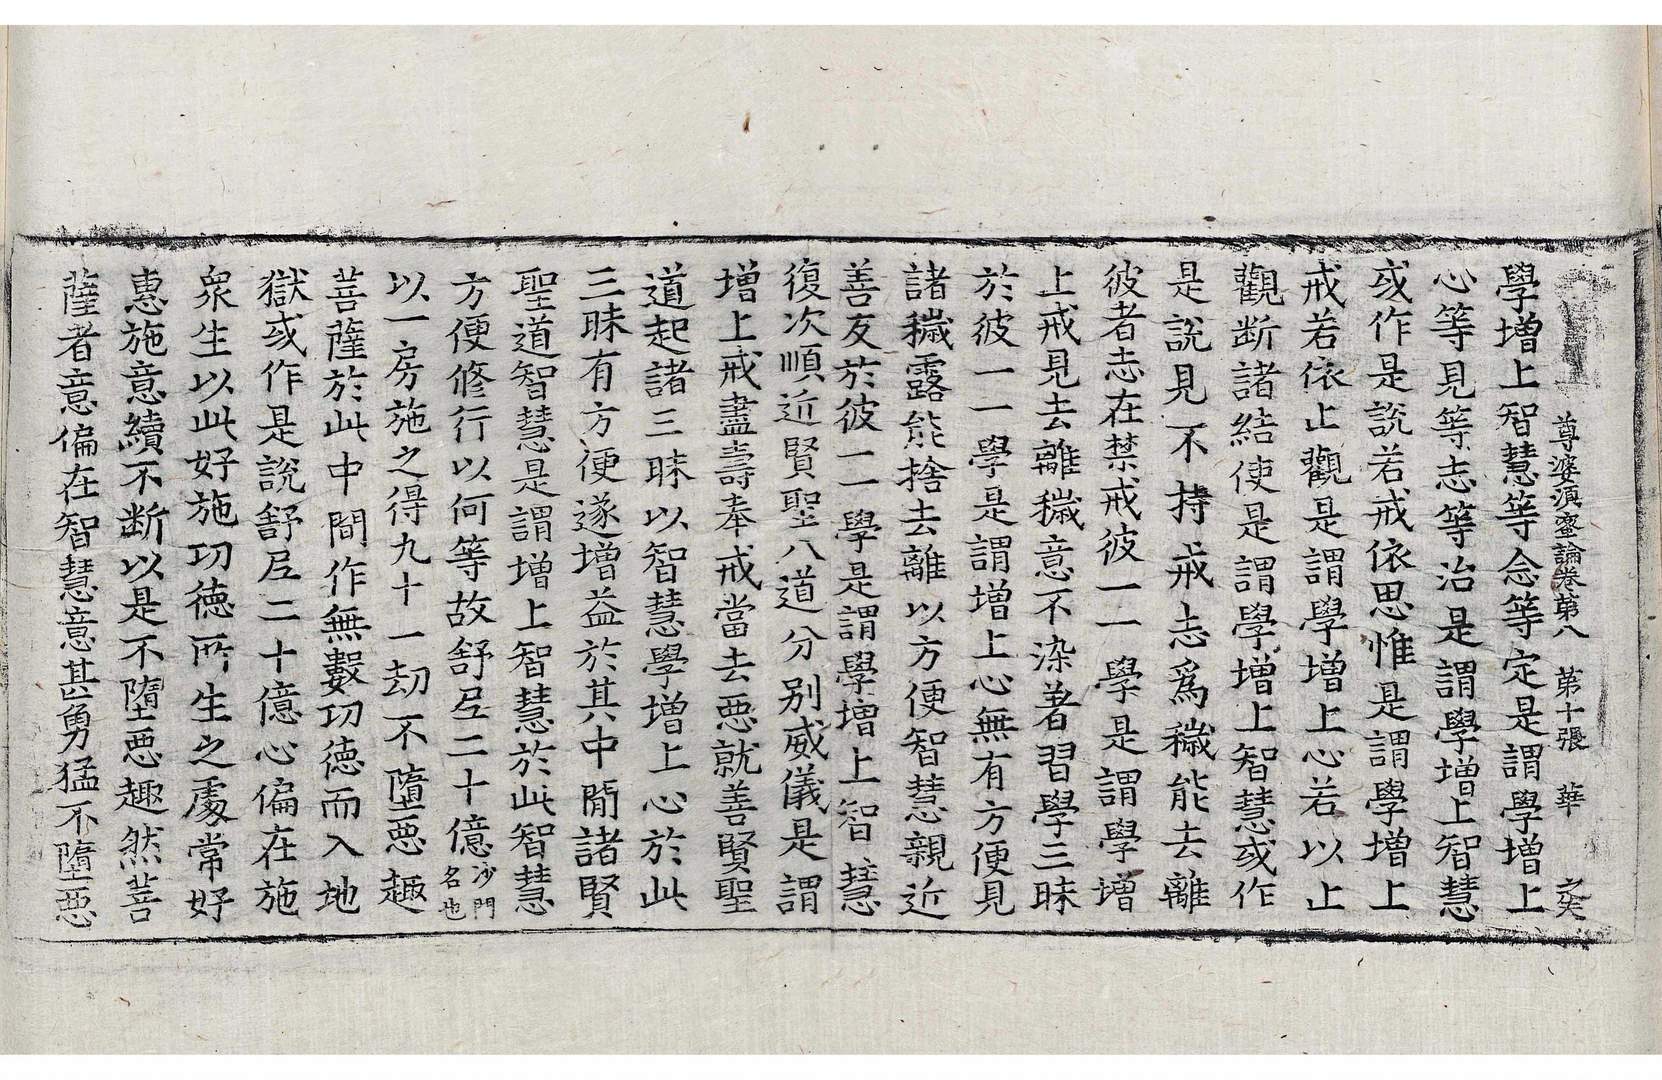 尊婆湏蜜論卷第八 第十張 華
學增上智慧等念等定是謂學增上
心等見等志等治是謂學增上智慧
或作是說若戒依思惟是謂學增上
戒若依止觀是謂學增上心若以止
觀斷諸結使是謂學增上智慧或作
是說見不持戒志爲穢能去離
彼者志在禁戒彼一一學是謂學增
上戒見去離穢意不染著習學三昧
於彼一一學是謂增上心無有方便見
諸穢露能捨去離以方便智慧親近
善友於彼一一學是謂學增上智慧
復次順近賢聖八道分别威儀是謂
增上戒盡壽奉戒當去惡就善賢聖
道起諸三昧以智慧學增上心於此
三昧有方便遂增益於其中閒諸賢
聖道智慧是謂增上智慧於此智慧
方便修行以何等故舒𡰱二十億沙門名也
以一房施之得九十一劫不墮惡趣
菩薩於此中間作無數功德而入地
獄或作是說舒𡰱二十億心偏在施
衆生以此好施功德所生之處常好
惠施意續不斷以是不墮惡趣然菩
薩者意偏在智慧意甚勇猛不墮惡